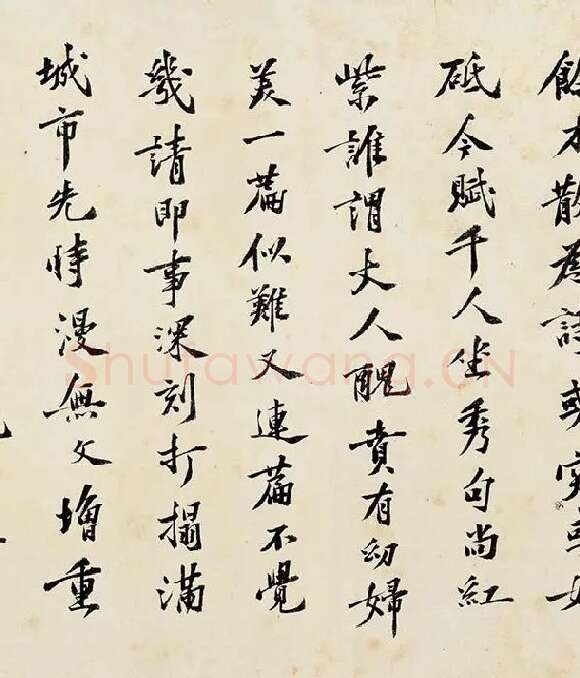 餘才散為詩或窮或
砥今賦千人坐秀句尚紅
紫誰謂丈人醜賁有幼婦
美一篇似難又連篇不覺
幾請即事深刻打搨滿
城市先時漫無文增重
Shufawang.CN